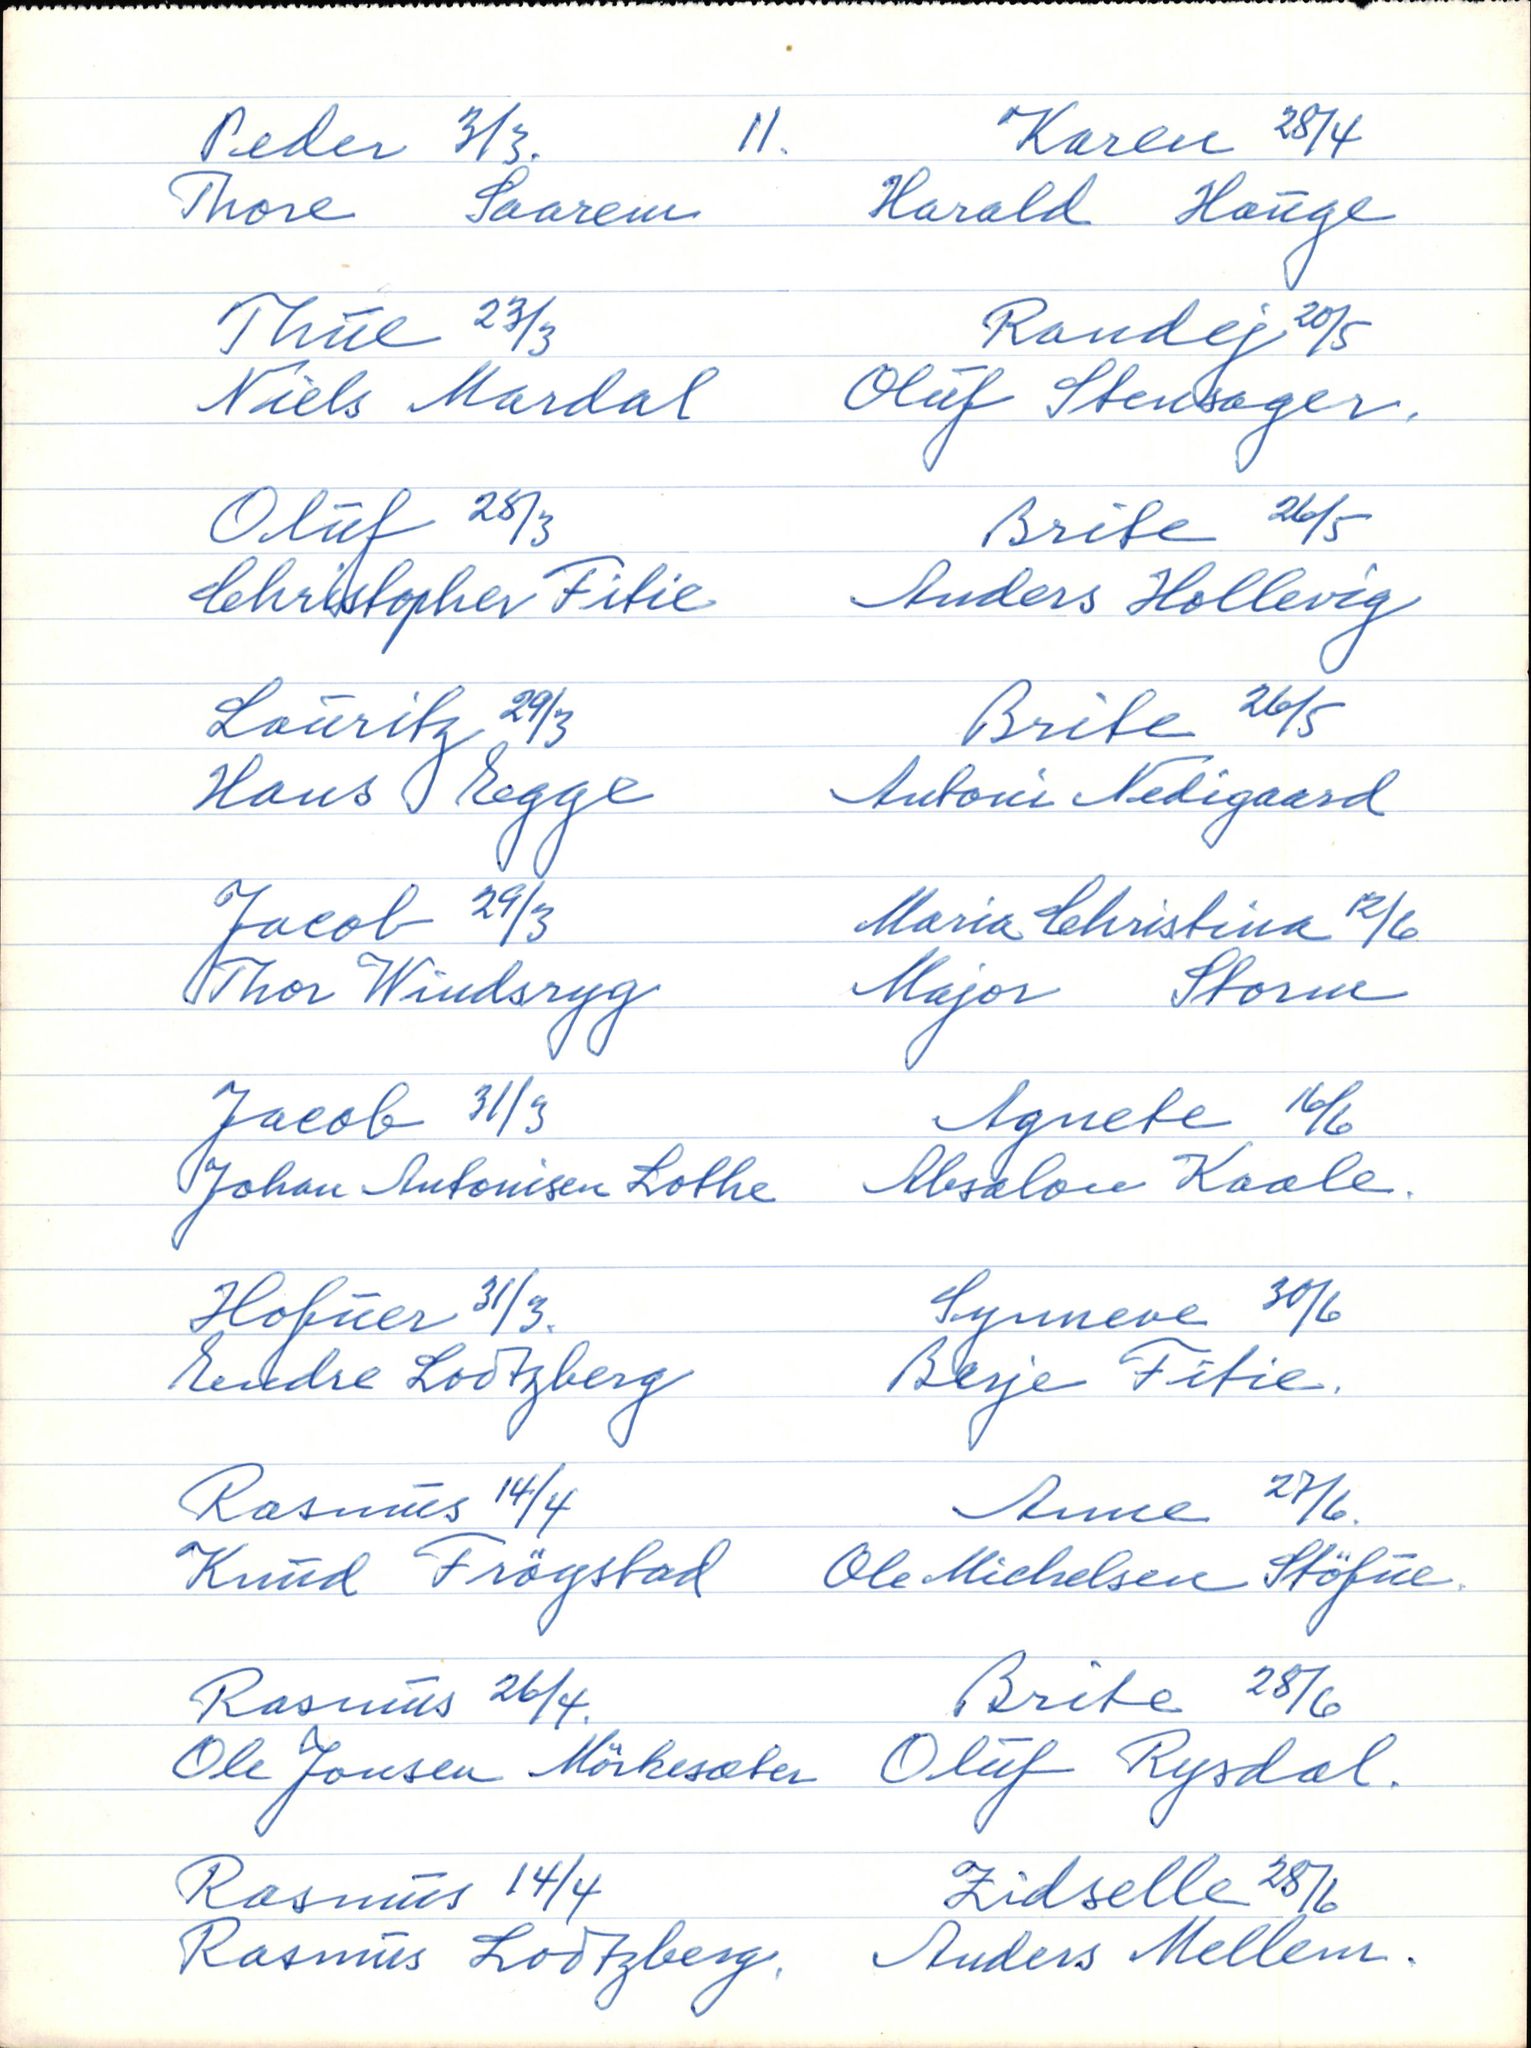 Peder 3/3. 11. Karen 28/4
Thore Saarem Harald Haŭge
Thŭe 23/3 Randej 20/5
Niels Mardal Olŭf Stensager.
Olŭf 28/3 Brite 26/5
Christopher Fitie Anders Hollevig
Laŭritz 29/3 Brite 26/5
Hans Egge Antoni Nedigaard
Jacob 29/3 Maria Christina 12/6
Thor Windsryg Major Storm
Jacob 31/3 Agnete 16/6
Johan Antonisen Lothe Absalon Kaale.
Hofŭer 31/3. Synneve 30/6
Endre Lodtzberg Berje Fitie.
Rasmŭs 14/4 Anne 27/6.
Knŭd Frögstad Ole Michelsen Stöfŭe.
Rasmŭs 26/4. Brite 28/6
Ole Jonsen Mörkesæter Olŭf Rysdal.
Rasmŭs 14/4 Zidselle 28/6
Rasmŭs Lodtzberg. Anders Mellem.